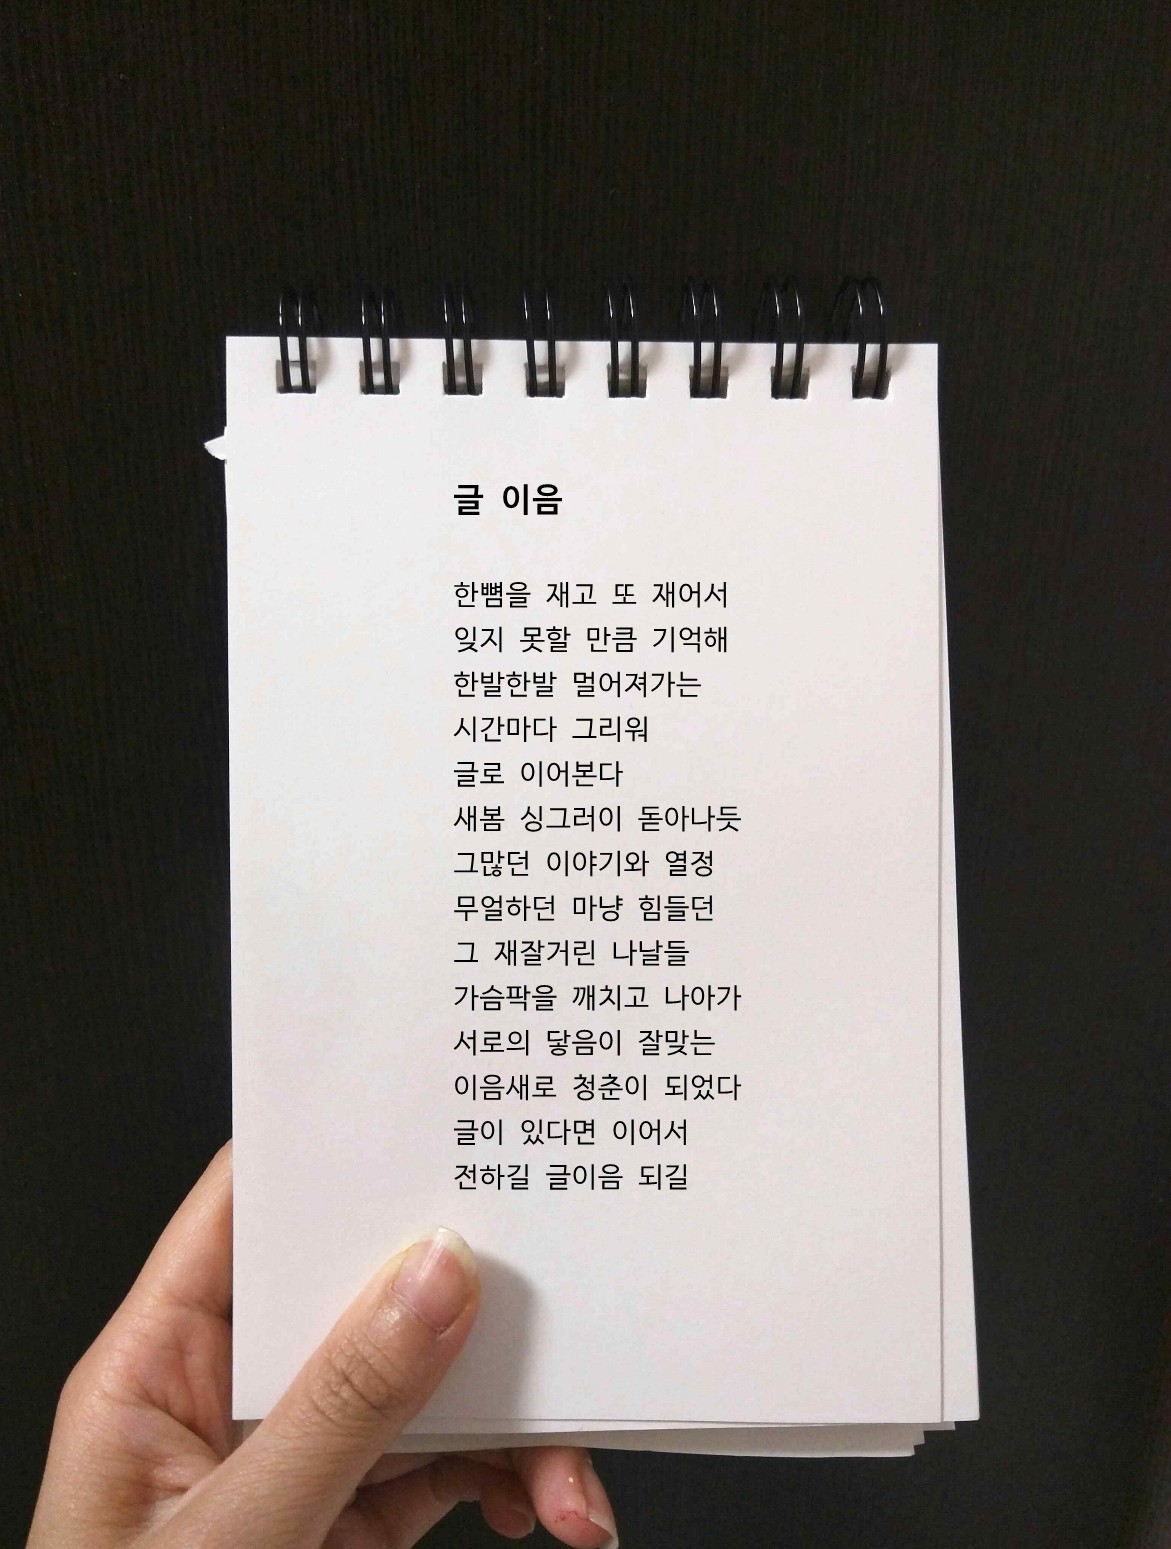 글 이음
한뼘을 재고 또 재어서
잊지 못할 만큼 기억해
한발한발 멀어져가는
시간마다 그리워
글로 이어본다
새봄 싱그러이 돋아나듯
그많던 이야기와 열정
무얼하던 마냥 힘들던
그 재잘거린 나날들
가슴팍을 깨치고 나아가
서로의 닿음이 잘맞는
이음새로 청춘이 되었다
글이 있다면 이어서
전하길 글이음 되길